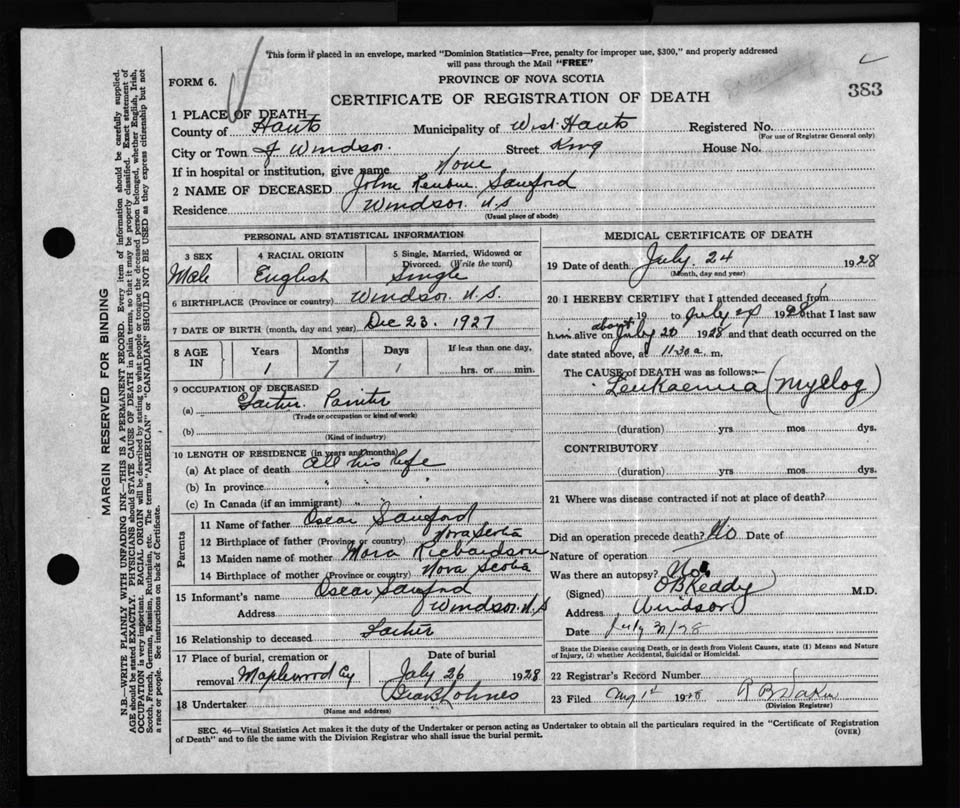 This form if placed in an envelope, marked "Dominion Statistics—Free, penalty for improper use, $300," and properly addressed
will pass through the Mail "FREE"
FORM 6.
PROVINCE OF NOVA SCOTIA
383
CERTIFICATE OF REGISTRATION OF DEATH
1 PLACE OF DEATH
County of Hants Municipality of West Hants Registered No.
(For use of Registrar General only)
City or Town of Windsor. Street King House No.
If in hospital or institution, give name None
2 NAME OF DECEASED John Reuben Sanford
Residence Windsor. N.S
(Usual place of abode)
PERSONAL AND STATISTICAL INFORMATION
3 SEX 4 RACIAL ORIGIN 5 Single, Married, Widowed or
Divorced. (Write the word)
Male English Single
6 BIRTHPLACE (Province or country) Windsor. N.S.
7 DATE OF BIRTH (month, day and year) Dec 23. 1927
8 AGE IN Years Months Days If less than one day,
1 7 1 hrs. or min.
9 OCCUPATION OF DECEASED
(a)
(Trade or occupation or kind of work)
(b)
(Kind of industry)
10 LENGTH OF RESIDENCE (in years and months)
(a) At place of death All his life
(b) In province " " "
(c) In Canada (if an immigrant) " " "
Parents
11 Name of father Oscar Sanford
12 Birthplace of father (Province or country) Nova Scotia
13 Maiden name of mother Richardson
14 Birthplace of mother (Province or country) Nova Scotia
15 Informant's name Oscar Sanford
Address Windsor. N.S
16 Relationship to deceased Father
17 Place of burial, cremation or Date of burial
removal Maplewood Cy July 26 1928
18 Undertaker
(Name and address)
MEDICAL CERTIFICATE OF DEATH
19 Date of death July. 24 1928
(Month, day and year)
20 I HEREBY CERTIFY that I attended deceased from
19 to July 24 1928 that I last saw
him alive on about July 20 1928 and that death occurred on the
date stated above, at 11.30 a. m.
The CAUSE of DEATH was as follows:—
Leukaemia (Myelog)
(duration) yrs mos dys.
CONTRIBUTORY
(duration) yrs mos dys.
21 Where was disease contracted if not at place of death?
Did an operation precede death? No Date of
Nature of operation
Was there an autopsy? No
(Signed) O B Keddy M.D.
Address Windsor
Date July
State the Disease causing Death, or in death from Violent Causes, state (1) Means and Nature
of Injury, (2) whether Accidental, Suicidal or Homicidal.
22 Registrar's Record Number
23 Filed 1st 1928
(Division Registrar)
SEC. 46—Vital Statistics Act makes it the duty of the Undertaker or person acting as Undertaker to obtain all the particulars required in the "Certificate of Registration
of Death" and to file the same with the Division Registrar who shall issue the burial permit.
(OVER)
MARGIN RESERVED FOR BINDING
N.B.—WRITE PLAINLY WITH UNFADING INK—THIS IS A PERMANENT RECORD. Every item of information should be carefully supplied.
AGE should be stated EXACTLY. PHYSICIANS should STATE CAUSE OF DEATH in plain terms, so that it may be properly classified. Exact statement of
OCCUPATION is very important. RACIAL ORIGIN will be described by stating to what people or tongue the deceased person belonged, whether English, Irish,
Scotch, French, German, Russian, Ruthenian, etc. The terms "AMERICAN" or "CANADIAN" SHOULD NOT BE USED as they express citizenship but not
a race or people. See instructions on back of Certificate.